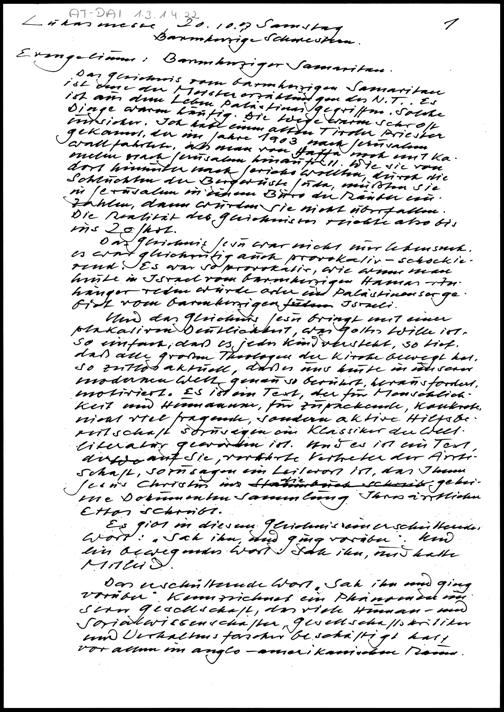 AT-DAI 1.3.1.4.32
Lukasmesse 20.10.07 Samstag 1
Barmherzige Schwestern.
Evangelium: Barmherziger Samaritan.
Das Gleichnis vom barmherzigen Samaritan
ist eine der Meistererzählungen des N.T.. Es
ist aus dem Leben Palästinas gegriffen. Solche
Dinge waren häufig. Die Wege waren schlecht
unsicher. Ich habe einen alten Tiroler Priester
gekannt, der im Jahre 1903 nach Jerusalem
wallfahrtet, als man von noch mit Ka-
melen nach Jerusalem hinaufritt. Wie sie von
dort hinunter nach Jericho wollten, durch die
Schluchten der Bergwüste Juda, mußten sie
in Jerusalem in einem Büro der Räuber ein-
zahlen, dann würden sie nicht überfallen.
Die Realität des Gleichnisses reichte also bis
ins 20. Jhdt.
Das Gleichnis Jesu war nicht nur lebensnah.
es war gleichzeitig auch provokativ - schockie-
rend: Es war so provokativ, wie wenn man
heute in Israel vom barmherzigen Hamas-An-
hänger reden würde oder im Palästinenserge-
biet vom barmherzigen Israeli.
Und das Gleichnis Jesu bringt mit einer
plakativen Deutlichkeit, was Gottes Wille ist.
So einfach, daß es jedes Kind versteht, so tief,
daß alle großen Theologen der Kirche bewegt hat.
so zeitlos aktuell, daß es uns heute in unserer
modernen Welt genau so berührt, herausfordert,
motiviert. Es ist ein Text, der für Menschlich-
keit und Humanum, für zupackende, konkrete,
nicht viel fragende, sondern aktive Hilfsbe-
reitschaft sozusagen ein Klassiker der Welt-
literatur geworden ist. Und es ist ein Text,
der auf Sie, verehrte Vertreter der Ärzte-
schaft, sozusagen ein Leitwort ist, das Ihnen
Jesus Christus ins Stammbuch schreib gehei-
me Dokumentensammlung Ihres ärztlichen
Ethos schreibt.
Es gibt in diesem Gleichnis ein erschütterndes
Wort: "Sah ihn, und ging vorüber". Und
ein bewegendes Wort: Sah ihn, und hatte
Mitleid.
Das erschütternde Wort "Sah ihn und ging
vorüber" kennzeichnet ein Phänomen un-
serer Gesellschaft, das viele Human- und
Sozialwissenschafter, Gesellschaftskritiker
und Verhaltensforscher beschäftigt hat,
vor allem im anglo-amerikanischen Raum.